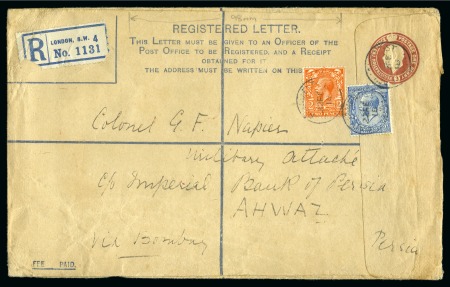 REGISTERED LETTER.
THIS LETTER MUST BE GIVEN TO AN OFFICER OF THE
POST OFFICE TO BE REGISTERED, AND A RECEIPT
OBTAINED FOR IT.
THE ADDRESS MUST BE WRITTEN ON THIS
R
LONDON, S.W. 4
No. 1131
Colonel G. F. Napier
Military Attaché
c/o Imperial Bank of Persia
AHWAZ
Via Bombay
Persia
FEE PAID.